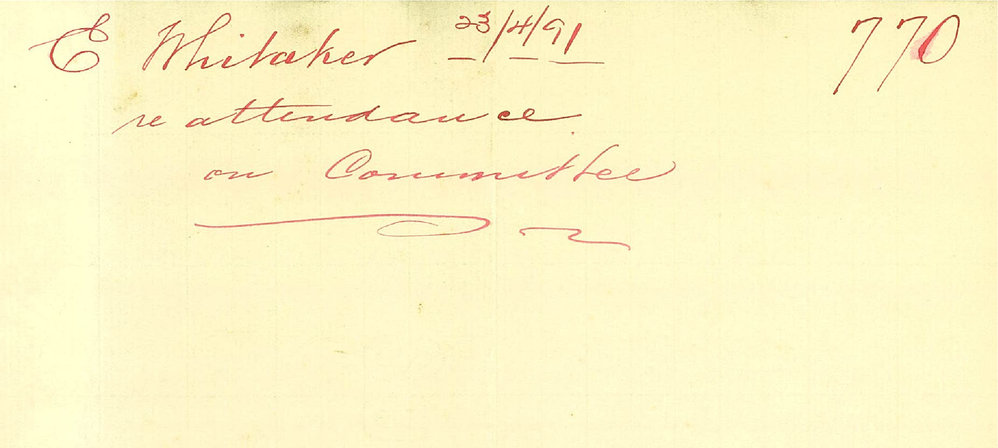 E Whitaker 23/4/91 770
re attendance
on Committee